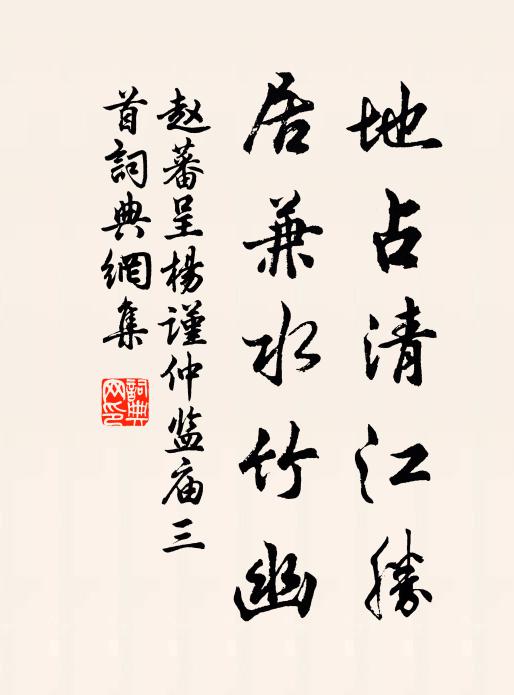 地占清江勝
居兼水竹幽
赵蕃呈楊谨仲监庙三
首詞典網集
詞典网印